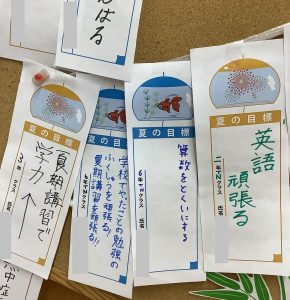 んばる
夏の目標
英語
頑張る
二年TNクラス
氏名
夏の目標
算数をとくいにする
6年TNクラス
氏名
夏の目標
学校でやったことの勉強の
ふくしゅうを頑張る!
夏期講習を頑張る!!
クラス
氏名
夏の目標
夏期講習で
学力↑
3年 クラス
氏名
中症